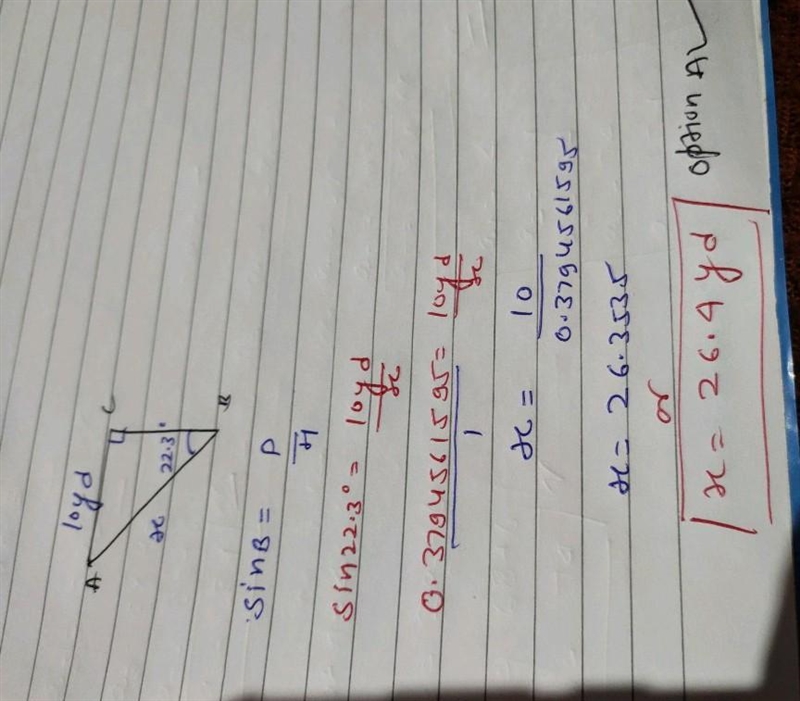 10yd
A
C
x
22.3°
B
SinB = P/H
Sin22.3° = 10yd/x
0.3794561595/1 = 10yd/x
x = 10/0.3794561595
x = 26.3535
or
x = 26.4 yd option A